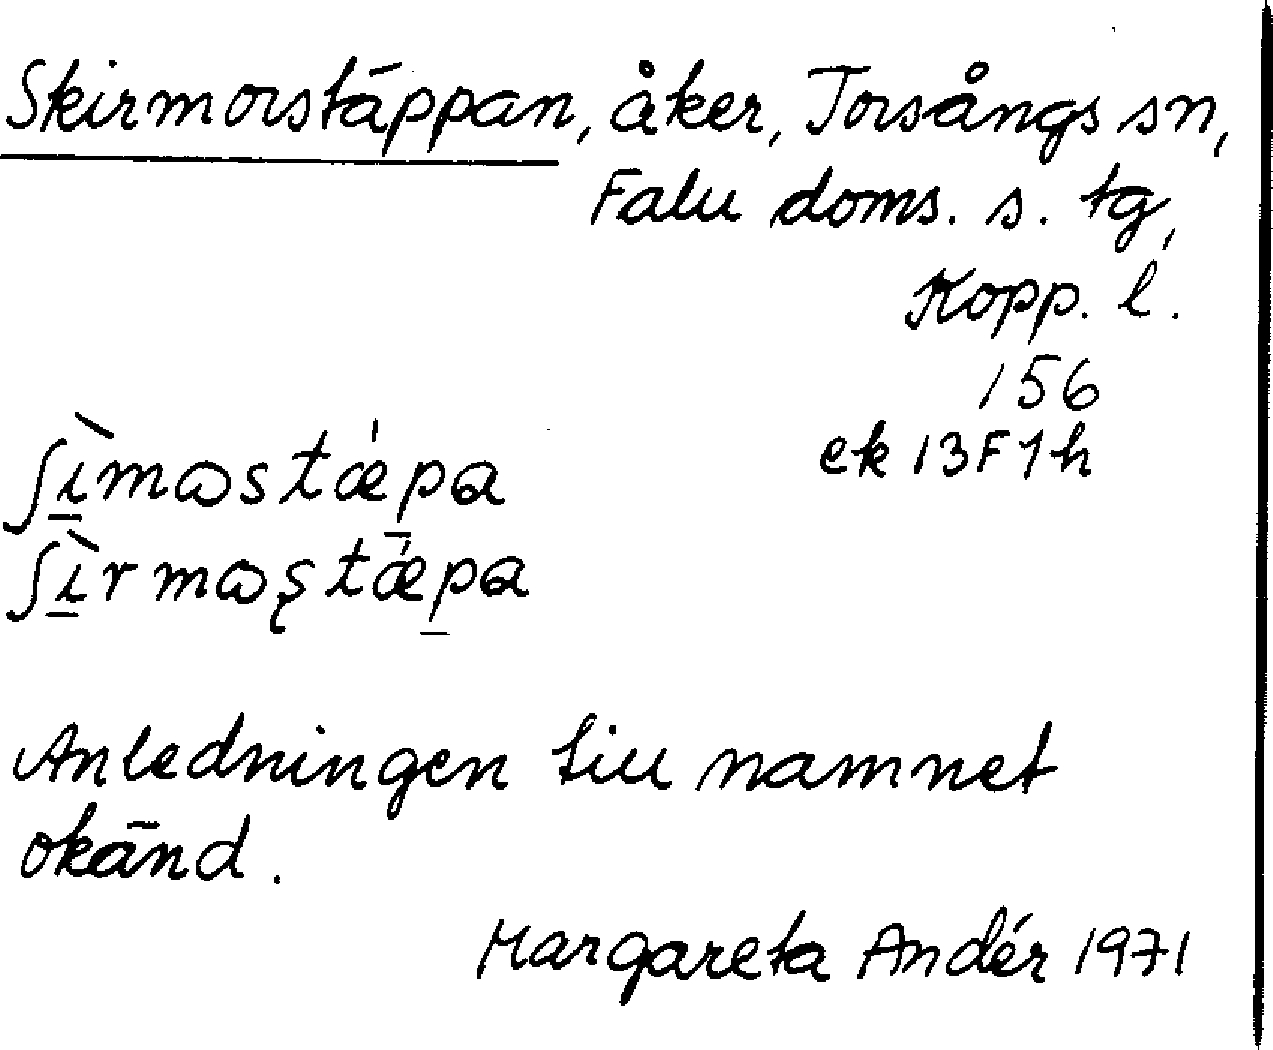 Skirmorstäppan, åker, Torsångs sn,
Falu doms. s. tg,
Kopp. l.
156
ek 13F1h
ʃì̲mɷstǽp̲a
ʃì̲rmɷʂtǽp̲a
Anledningen till namnet
okänd.
Margareta Andér 1971